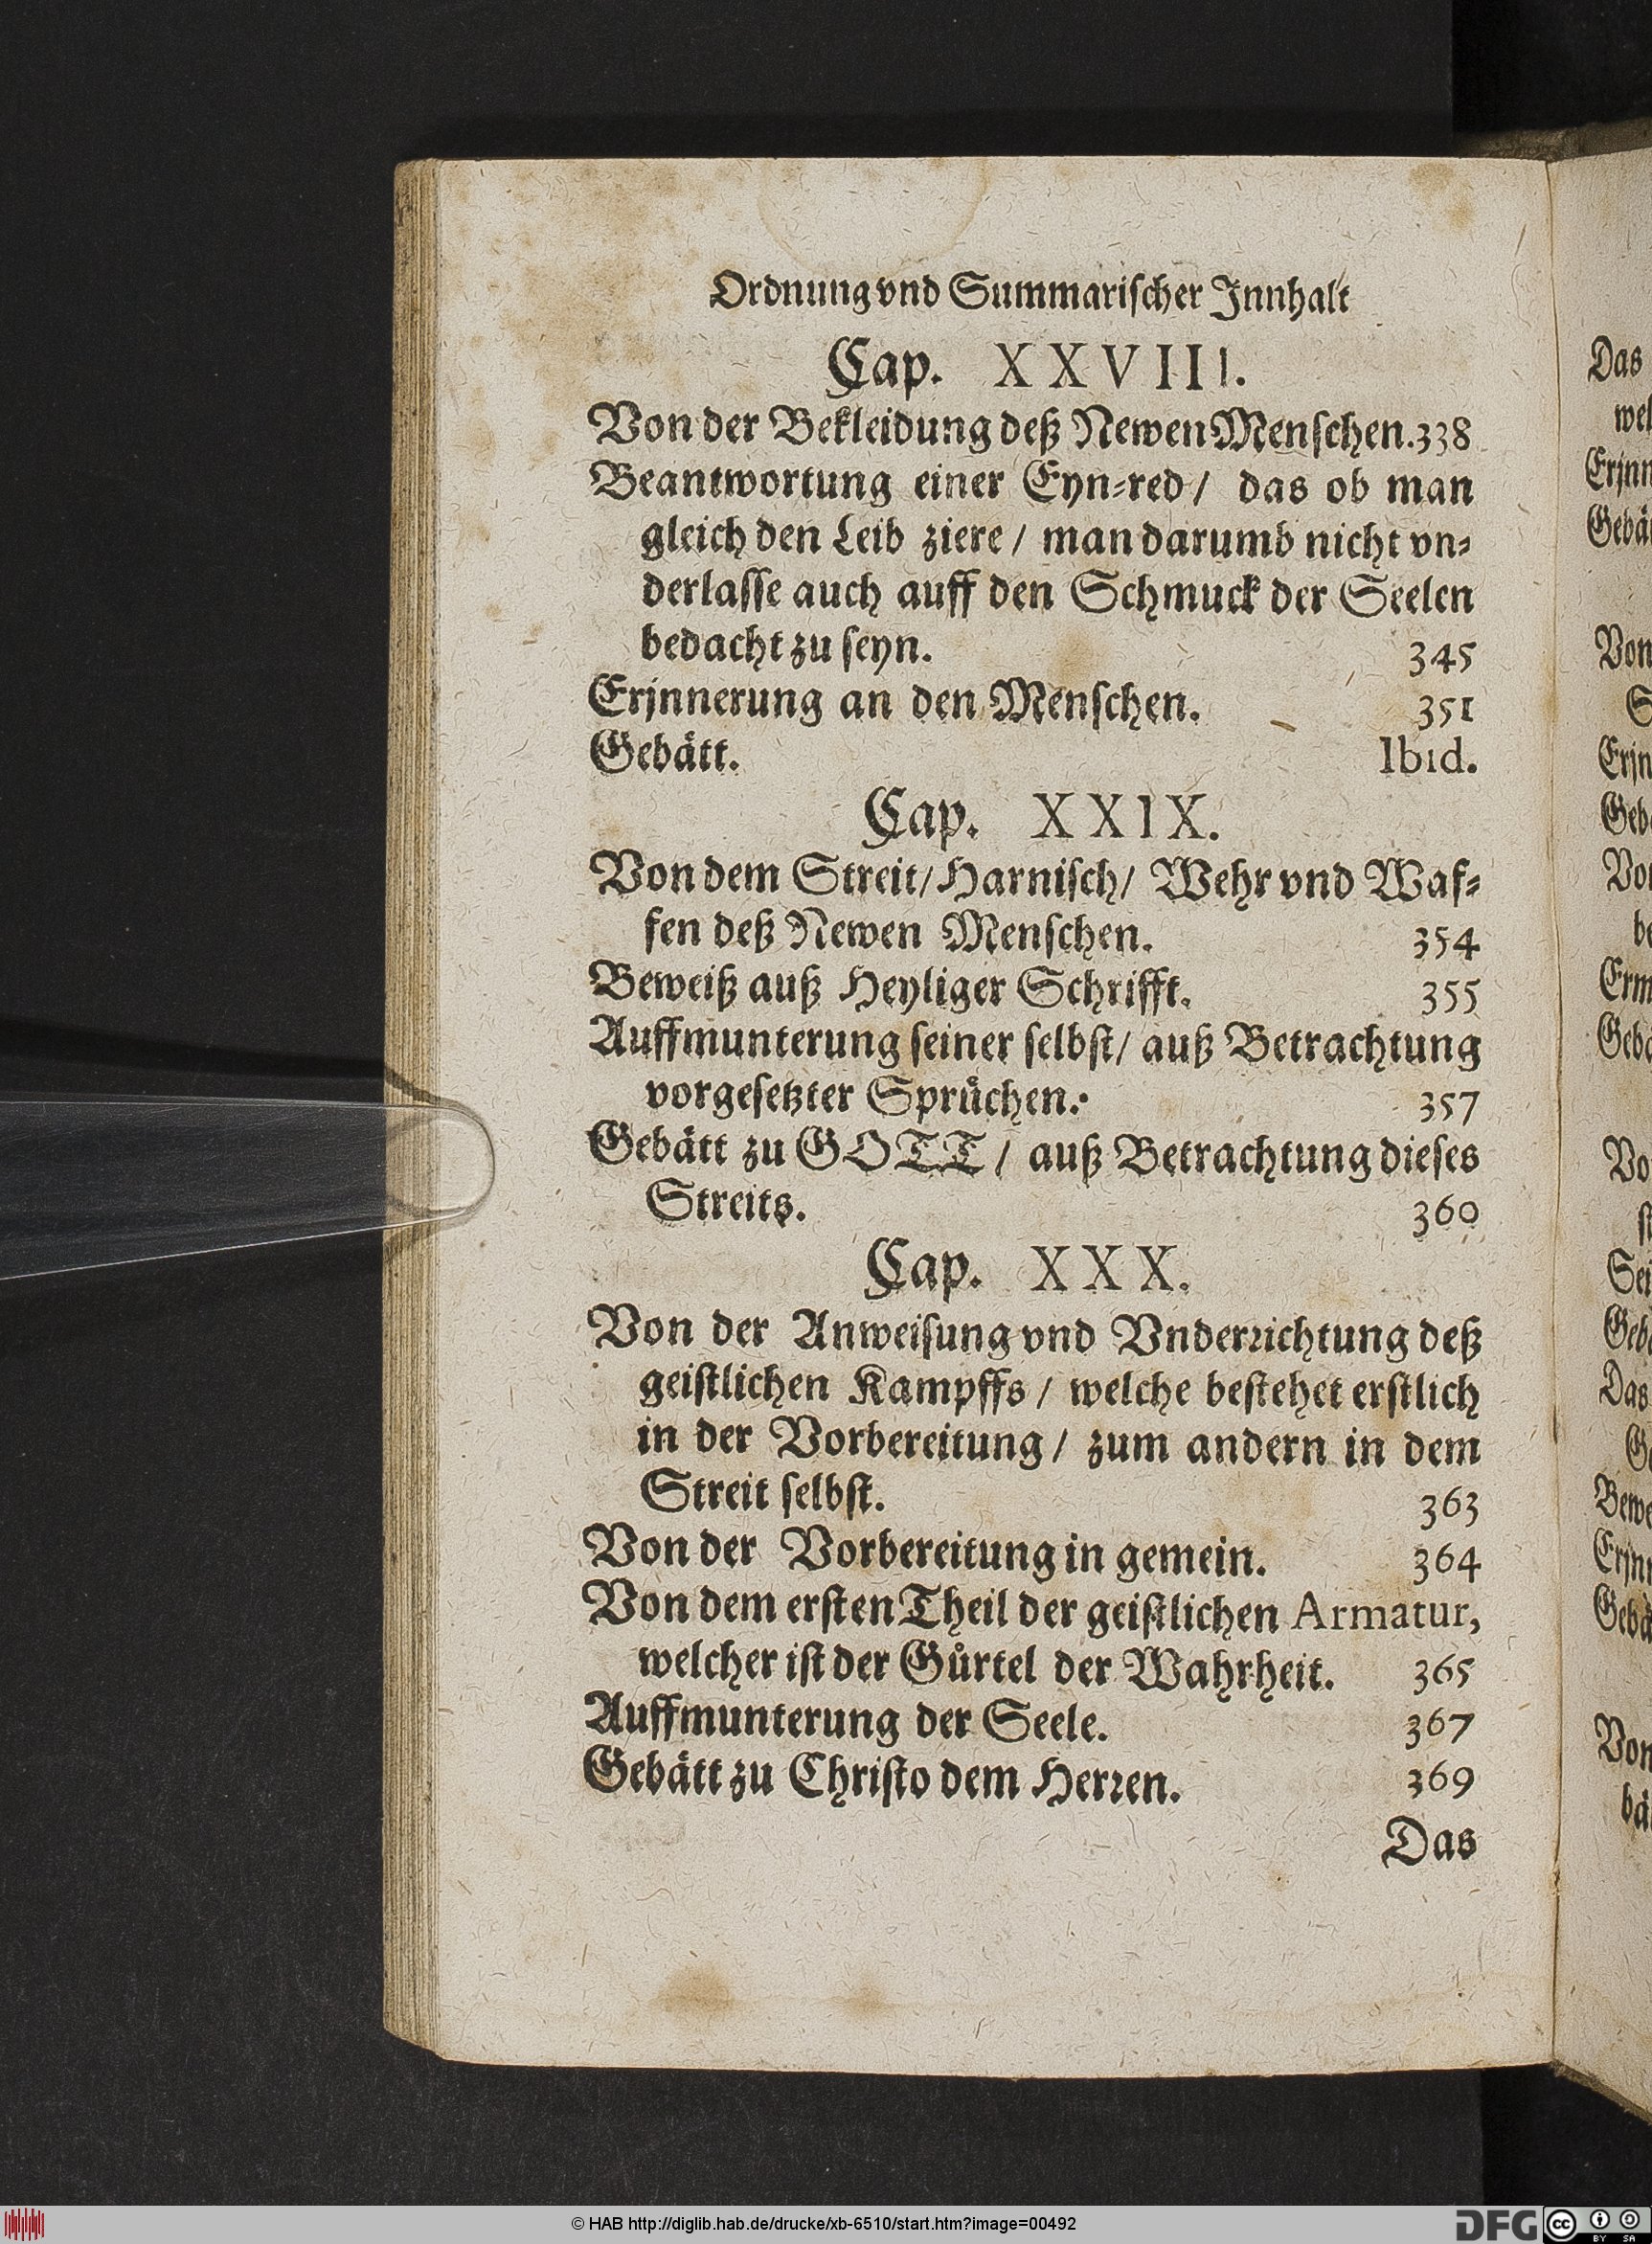 Ordnung vnd Summarischer Innhalt
Cap. XXVIII.
Von der Bekleidung deß Newen Menschen. 338
Beantwortung einer Eyn-red / das ob man
gleich den Leib ziere / man darumb nicht vn-
derlasse auch auff den Schmuck der Seelen
bedacht zu seyn. 345
Erjnnerung an den Menschen. 351
Gebätt. Ibid.
Cap. XXIX.
Von dem Streit / Harnisch / Wehr vnd Waf-
fen deß Newen Menschen. 354
Beweiß auß Heyliger Schrifft. 355
Auffmunterung seiner selbst / auß Betrachtung
vorgesetzter Sprüchen. 357
Gebätt zu GOTT / auß Betrachtung dieses
Streits. 360
Cap. XXX.
Von der Anweisung vnd Vnderrichtung deß
geistlichen Kampffs / welche bestehet erstlich
in der Vorbereitung / zum andern in dem
Streit selbst. 363
Von der Vorbereitung in gemein. 364
Von dem ersten Theil der geistlichen Armatur,
welcher ist der Gürtel der Wahrheit. 365
Auffmunterung der Seele. 367
Gebätt zu Christo dem Herren. 369
Das
Das
Von
© HAB http://diglib.hab.de/drucke/xb-6510/start.htm?image=00492
DFG
cc BY SA